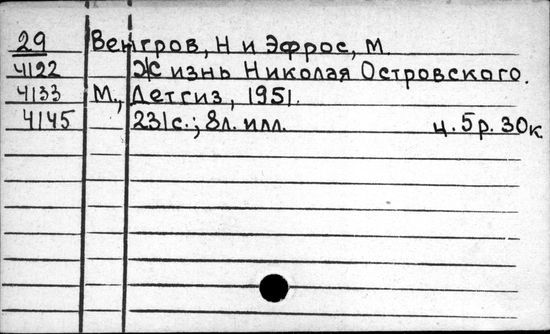 29 Венгров, Н и Эфрос, М.
4122 Жизнь Николая Островского.
4133 М., Детгиз, 1951.
4145 231с.; 8л. илл. ц. 5р. 30к